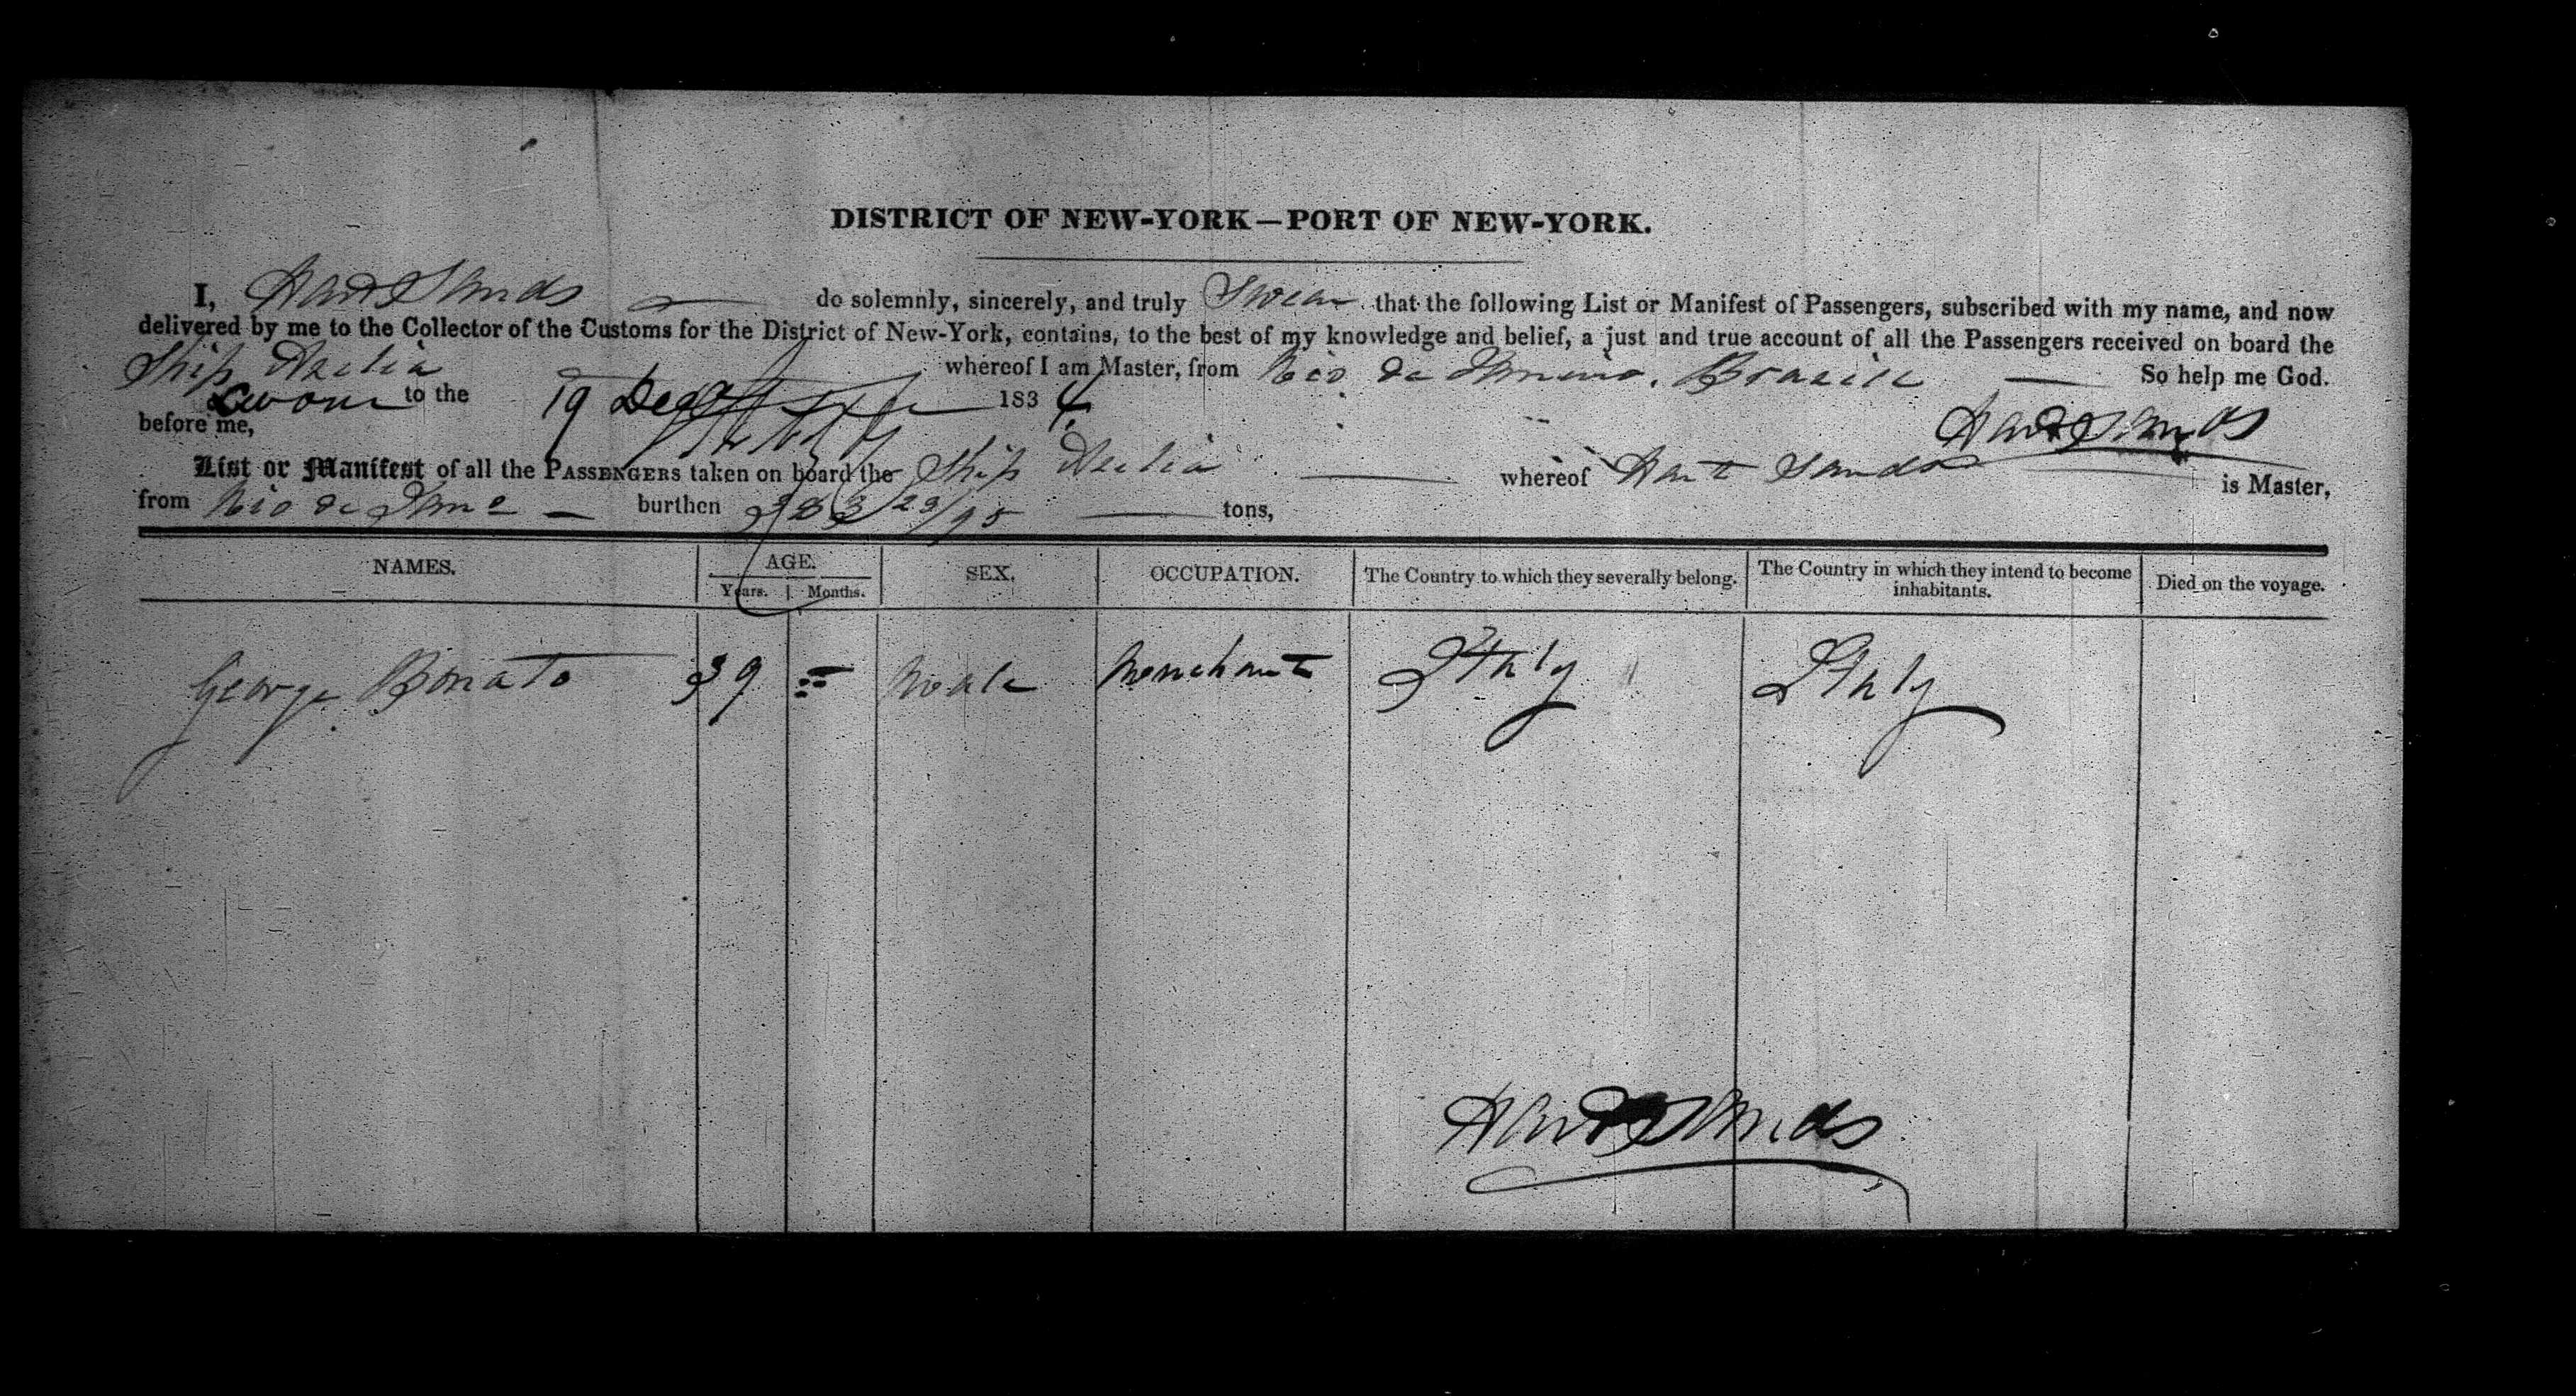 DISTRICT OF NEW-YORK—PORT OF NEW-YORK.
I, Hart Sands do solemnly, sincerely, and truly Swear that the following List or Manifest of Passengers, subscribed with my name, and now
delivered by me to the Collector of the Customs for the District of New-York, contains, to the best of my knowledge and belief, a just and true account of all the Passengers received on board the
Ship whereof I am Master, from Rio de Janeiro, Brazil So help me God.
Sworn to the 19 Dec 1834
before me, Hart Sands
List or Manifest of all the PASSENGERS taken on board the Ship whereof Hart Sands is Master,
from Rio de burthen 383 23/95 tons,
NAMES. AGE. SEX. OCCUPATION. The Country to which they severally belong. The Country in which they intend to become inhabitants. Died on the voyage.
Years. Months.
George Bonato 39 Male Merchant Italy Italy
Hart Sands